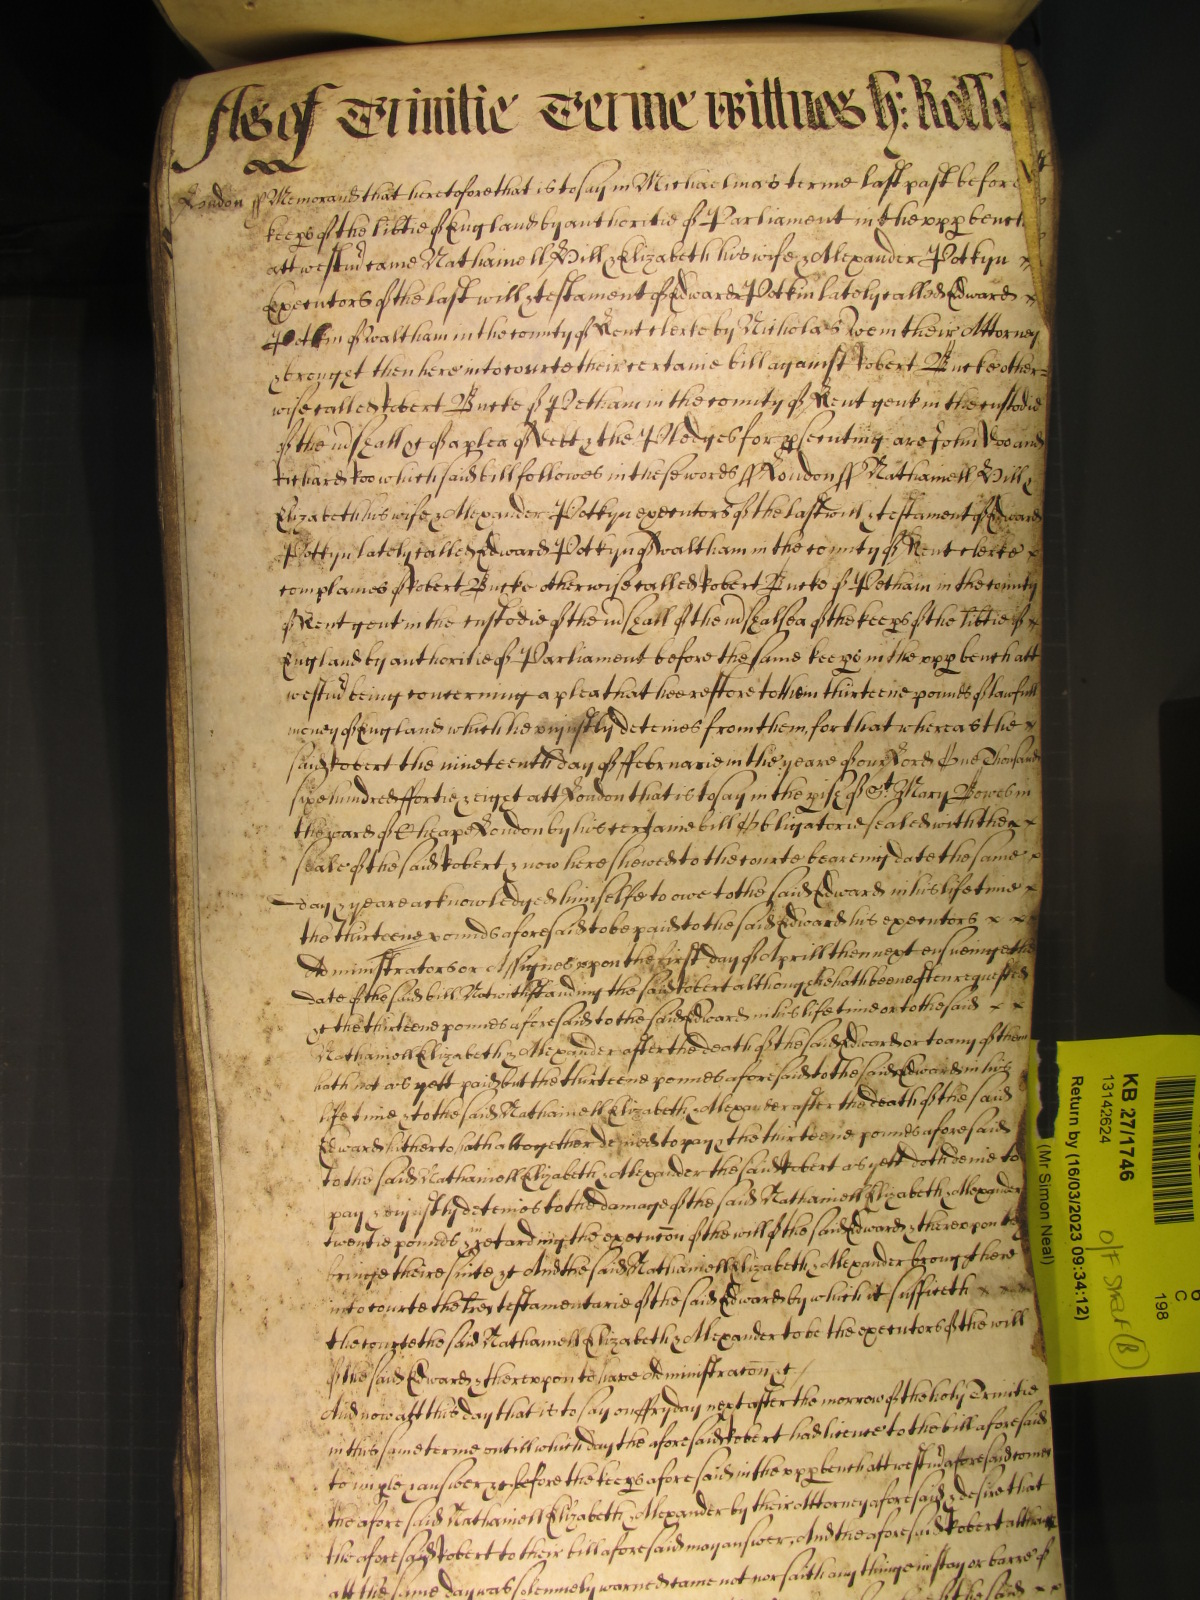 As of Trinitie Terme wittnes H: Rolle
London ss Memorand that heretofore that is to say in Michaelmas terme last past before
keeps of the libtie of England by authoritie of Parliament in the upp bench
att westm came Nathaniell Hill & Elizabeth his wife & Alexander Potkyn x
Executors of the last will & testament of Edward Potkin lately called Edward x
Potkin of waltham in the county of Kent clerke by Nicholas their Attorney
& brought then here into courte their certaine bill against Robert Bucke other=
wise called Robert Bucke of Petham in the county of Kent gent in the custodie
of the mshall &c of a plea of debt & the Pledges for pscuting are John Doo and
Richard Roo which said bill followes in these words ss London ss Nathaniell Hill &
Elizabeth his wife & Alexander Potkyn executors of the last will & testament of Edward
Potkyn lately called Edward Potkyn of waltham in the county of Kent clerke x
complaines of Robert Bucke otherwise called Robert Bucke of Petham in the county
of Kent gent in the custodie of the mshall of the mshalsea of the keeps of the libtie of x
England by authoritie of Parliament before the same keeps in the upp bench att
westm being concerning a plea that hee restore to them thirteene pounds of lawfull
money of England which he uniustly deteines from them, for that whereas the x
said Robert the nineteenth day of ffebruarie in the yeare of our Lord One Thousand
sixe hundred ffortie & eight att London that is to say in the pish of St Mary Bowes in
the ward of Cheape London by his certaine bill Obligatorie sealed with the x x
seale of the said Robert & now here shewed to the courte beareing date the same x
day & yeare acknowledged himselfe to owe to the said Edward in his life time x
the thirteene pounds aforesaid to be paid to the said Edward his executors x x
Administrators or Assignes upon the first day of Aprill then next ensueing the
date of the said bill Notwithstanding the said Robert although he hath beene often requested
&c the thirteene pounds aforesaid to the said Edward in his life time or to the said x x
Nathaniell Elizabeth & Alexander after the death of the said Edward or to any of them
hath not as yett paid but the thirteene pounds aforesaid to the said Edward in his
life time & to the said Nathaniell Elizabeth & Alexander after the death of the said
Edward hitherto hath altogether denied to pay & the thirteene pounds aforesaid
to the said Nathaniell Elizabeth & Alexander the said Robert as yett doth denie to
pay & uniustly deteines to the damage of the said Nathaniell Elizabeth & Alexander
twentie pounds & in retarding the execucon of the will of the said Edward & thereupon they
bringe theire suite &c And the said Nathaniell Elizabeth & Alexander brought here
into courte the lres testamentarie of the said Edward by which it sufficeth x x x
the courte the said Nathaniell Elizabeth & Alexander to be the executors of the will
of the said Edward & thereupon to have Administracon &c /
And now att this day that is to say on ffryday next after the morrow of the holy Trinitie
in this same terme untill which day the aforesaid Robert had licence to the bill aforesaid
to imple & answer &c before the keeps aforesaid in the upp bench att westm aforesaid comes
the aforesaid Nathaniell Elizabeth & Alexander by their Attorney aforesaid & desire that
the aforesaid Robert to their bill aforesaid may answer, And the aforesaid Robert although
att the same day was solemnely warned came not nor saith any thinge in stay or barre of
KB 27/1746
13142624
Return by (16/03/2023 09:34:12)
(Mr Simon Neal)
C
198